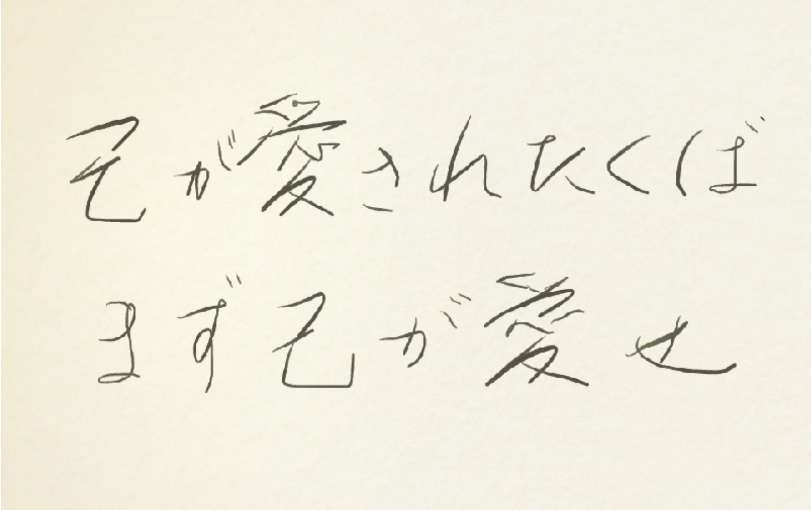 己が愛されたくば
まず己が愛せ